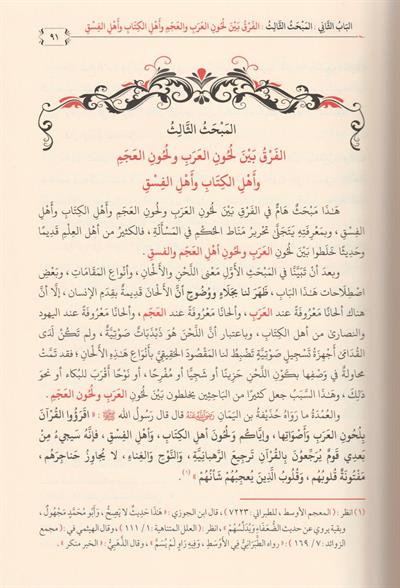 البَابُ الثَّانِي : المَبْحَثُ الثَّالِثُ : الفَرْقُ بَيْنَ لُحُونِ العَرَبِ والعَجَمِ وَأَهْلِ الكِتَابِ وأَهْلِ الفِسْقِ
٩١
المَبْحَثُ الثَّالِثُ
الفَرْقُ بَيْنَ لُحُونِ العَرَبِ ولُحُونِ العَجَمِ
وأَهْلِ الكِتَابِ وأَهْلِ الفِسْقِ
هَـٰذَا مَبْحَثٌ هَامٌّ في الفَرْقِ بَيْنَ لُحُونِ العَرَبِ ولُحُونِ العَجَمِ وَأَهْلِ الكِتَابِ وأَهْلِ
الفِسْقِ ، وبمَعْرِفَتِهِ يَتَجَلَّىٰ تَحْرِيرُ مَنَاطِ الحُكْمِ في المَسْأَلَةِ ، فالكثيرُ مِنْ أَهْلِ العِلْمِ قَدِيمًا
وحَدِيثًا خَلَطُوا بَيْنَ لُحُونِ العَرَبِ ولُحُونِ أَهْلِ العَجَمِ والفسقِ .
وبعدَ أَنْ تَبَيَّنَّا في المَبْحَثِ الأَوَّلِ مَعْنَى اللَّحْنِ والأَلْحَانِ ، وأنْواعَ المَقَامَاتِ ، وبَعْضَ
اصْطِلَاحَاتِ هَـٰذَا البَابِ ، ظَهَرَ لنا بجَلَاءٍ ووُضُوحٍ أَنَّ الأَلْحَانَ قَدِيمَةٌ بقِدَمِ الإنسانِ ، إلَّا أَنَّ
هناك ألحانًا مَعْرُوفَةً عندَ العَرَبِ ، وأَلحانًا مَعْرُوفَةً عندَ العَجَمِ ، وألحانًا مَعْرُوفَةً عندَ اليهودِ
والنصارىٰ من أهلِ الكِتابِ ، وباعتبارِ أَنَّ اللَّحْنَ هُوَ ذَبْذَبَاتٌ صَوْتِيَّةٌ ، ولم تَكُنْ لَدَى
القُدَامَىٰ أَجْهِزَةُ تَسْجِيلٍ صَوْتِيَّةٌ تَضْبِطُ لنا المَقْصُودَ الحَقِيقِيَّ بأَنْوَاعِ هَـٰذِهِ الأَلْحَانِ ؛ فقد تَمَّتْ
محاولةٌ في وَصْفِها بكَوْنِ اللَّحْنِ حَزِينًا أو شَجِيًّا أو مُفْرِحًا ، أو نَوْحًا أَقْرَبَ للبُكَاءِ أو نحوَ
ذَلِكَ ، وهَـٰذَا السَّبَبُ جعلَ كثيرًا من الباحثِينَ يخلطونَ بينَ لُحُونِ العَرَبِ ولُحُونِ العَجَمِ .
والعُمْدَةُ ما رَوَاهُ حُذَيْفَةُ بن اليَمَانِ رَضِيَ اللَّهُ عَنْهُ قال قال رسولُ اللهِ ﷺ : « اقْرَؤُوا القُرْآنَ
بِلُحُونِ العَرَبِ وَأَصْوَاتِها ، وإيَّاكُمْ وَلُحُونَ أَهْلِ الكِتَابِ ، وَأَهْلِ الفِسْقِ ، فَإِنَّهُ سَيَجِيءُ مِنْ
بَعْدِي قَوْمٌ يُرَجِّعُونَ بِالقُرْآنِ تَرْجِيعَ الرَّهْبَانِيَّةِ ، وَالنَّوْحِ وَالغِنَاءِ ، لَا يُجَاوِزُ حَنَاجِرَهُم ،
مَفْتُونَةٌ قُلُوبُهُم ، وَقُلُوبُ الَّذِينَ يُعْجِبُهُمْ شَأْنُهُمْ »(١) .
(١) انظر : ( المعجم الأوسط ، للطبراني : ٧٢٢٣ ) ، قال ابن الجوزي : « هَذَا حَدِيثٌ لَا يَصِحُّ ، وَأَبُو مُحَمَّدٍ مَجْهُولٌ ،
وبقية يروي عن حديث الضُّعَفَاءِ وَيُدَلِّسُهُمْ » ، انظر : ( العلل المتناهية : ١ / ١١١ ) ، وقال الهيثمي في : ( مجمع
الزوائد : ٧ / ١٦٩ ) « رواه الطَّبَرَانِيُّ فِي الأَوْسَطِ ، وَفِيهِ رَاوٍ لَمْ يُسَمَّ » ، وقال الذَّهَبِيُّ : « الخبر منكر » .